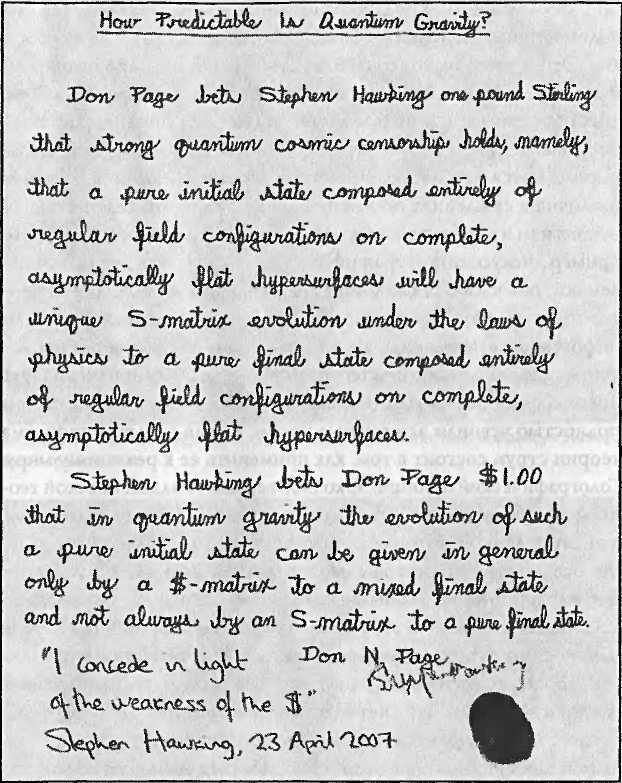 How Predictable Is Quantum Gravity?
Don Page bets Stephen Hawking one pound Sterling
that strong quantum cosmic censorship holds, namely,
that a pure initial state composed entirely of
regular field configurations on complete,
asymptotically flat hypersurfaces will have a
unique S-matrix evolution under the laws of
physics to a pure final state composed entirely
of regular field configurations on complete,
asymptotically flat hypersurfaces.
Stephen Hawking bets Don Page $1.00
that in quantum gravity the evolution of such
a pure initial state can be given in general
only by a $-matrix to a mixed final state
and not always by an S-matrix to a pure final state.
"I concede in light
Don N Page
of the weakness of the $"
Stephen Hawking, 23 April 2007